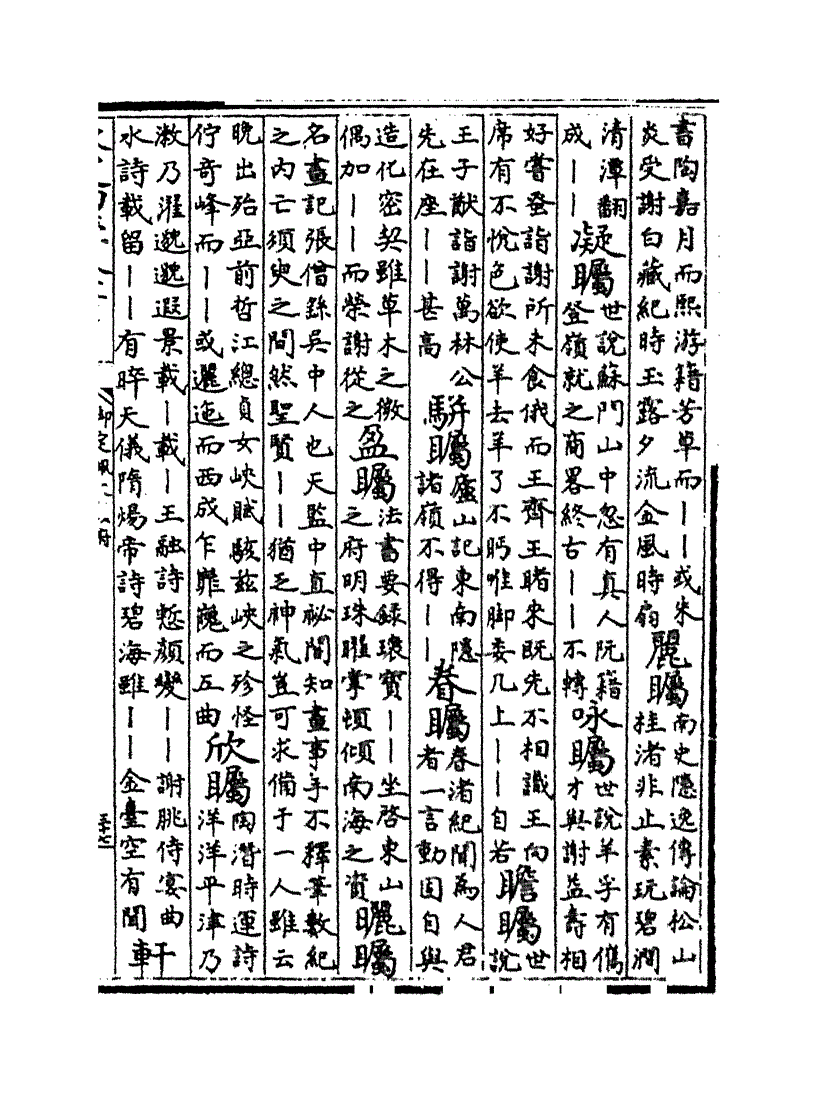 書陶嘉月而熙游籍芳草而——或朱
炎受謝白藏紀時玉露夕流金風時扇
麗矚
南史隠逸傳論松山
桂渚非止素玩碧澗
清潭翻
成——
凝矚
世說蘇門山中忽有真人阮籍
登嶺就之商畧終古——不轉
咏矚
世說羊孚有儁
才與謝益壽相
好嘗蚤詣謝所未食俄而王齊王睹來既先不相識王向
席有不悅色欲使羊去羊了不眄唯脚委几上——自若
瞻矚
世
說
王子猷詣謝萬林公
先在座——甚高
駢矚
廬山記東南隠
諸嶺不得——
眷矚
春渚紀聞為人君
者一言動固自與
造化密契雖草木之微
偶加——而榮謝從之
盈矚
法書要録瓌寳——坐啓東山
之府明珠曜掌頓傾南海之資
曬矚
名畫記張僧繇吳中人也天監中直祕閣知畫事手不釋筆數紀
之内亡須臾之間然聖賢——猶乏神氣豈可求備于一人雖云
晚出殆亞前哲江總貞女峽賦駭兹峽之珍怪
佇奇峰而——或邐迤而西成乍而互曲
欣矚
陶潛時運詩
洋洋平津乃
漱乃濯邈邈遐景載—載—王融詩慙顔變——謝朓侍宴曲
水詩載留——有睟天儀隋煬帝詩碧海雖——金臺空有聞
軒